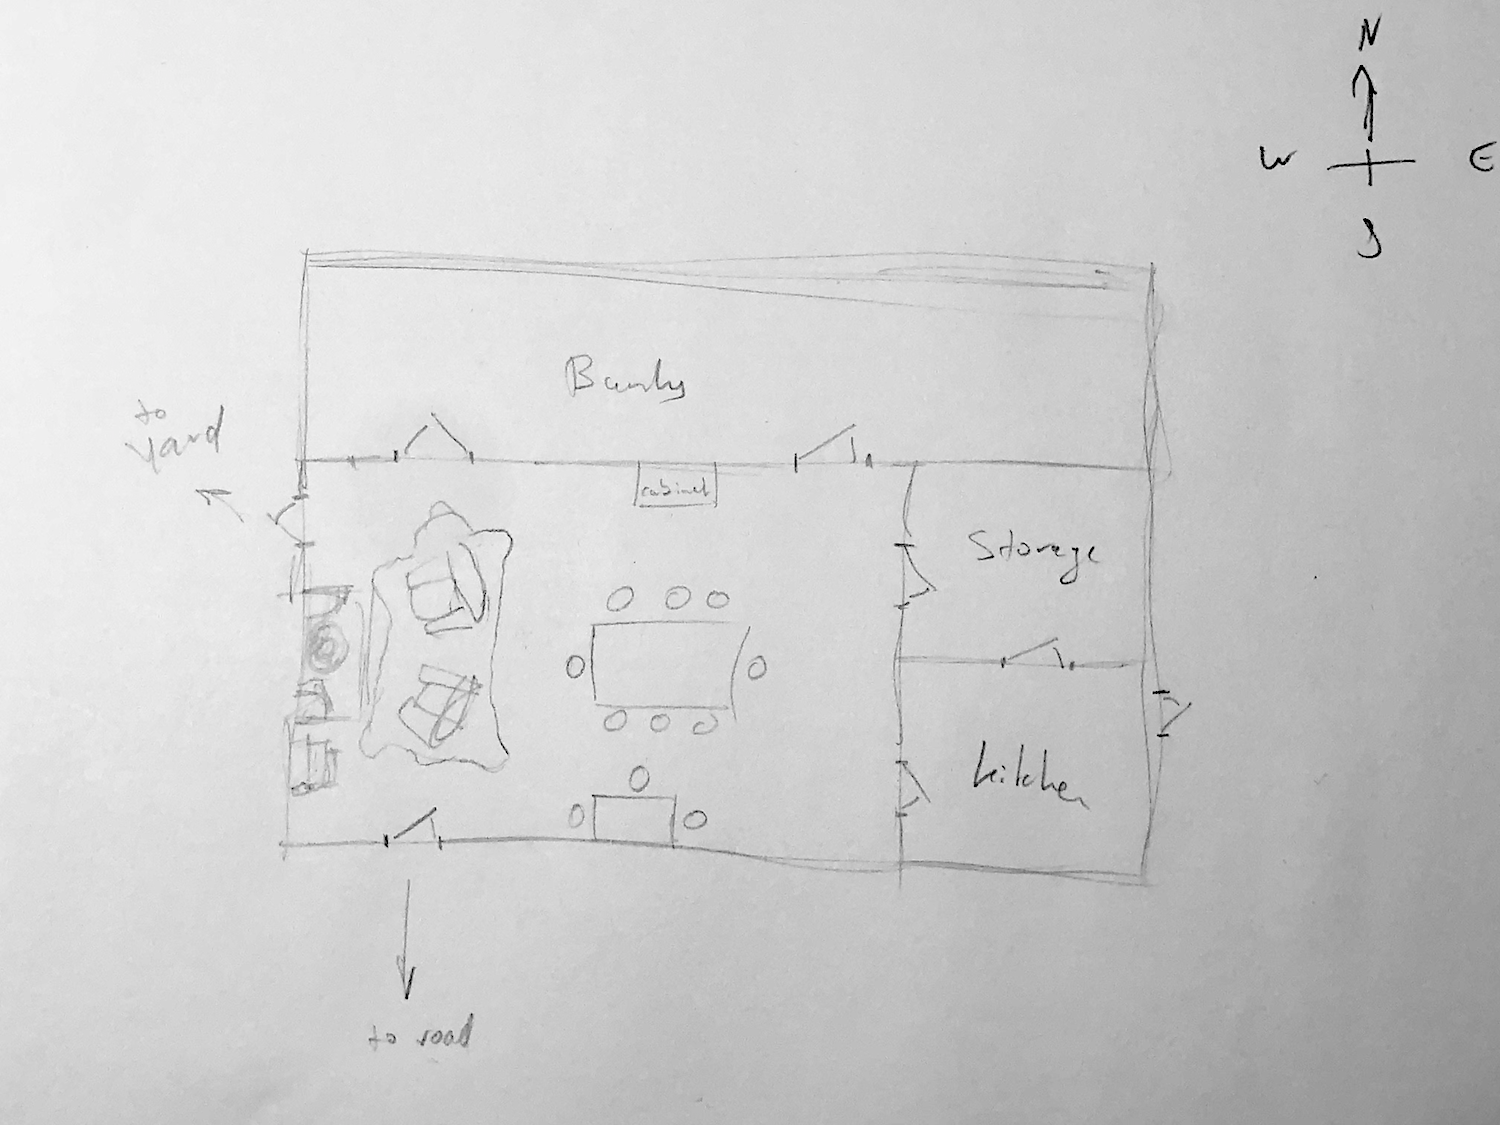 N
W E
S
to
yard
cabinet
Storage
kitchen
to road